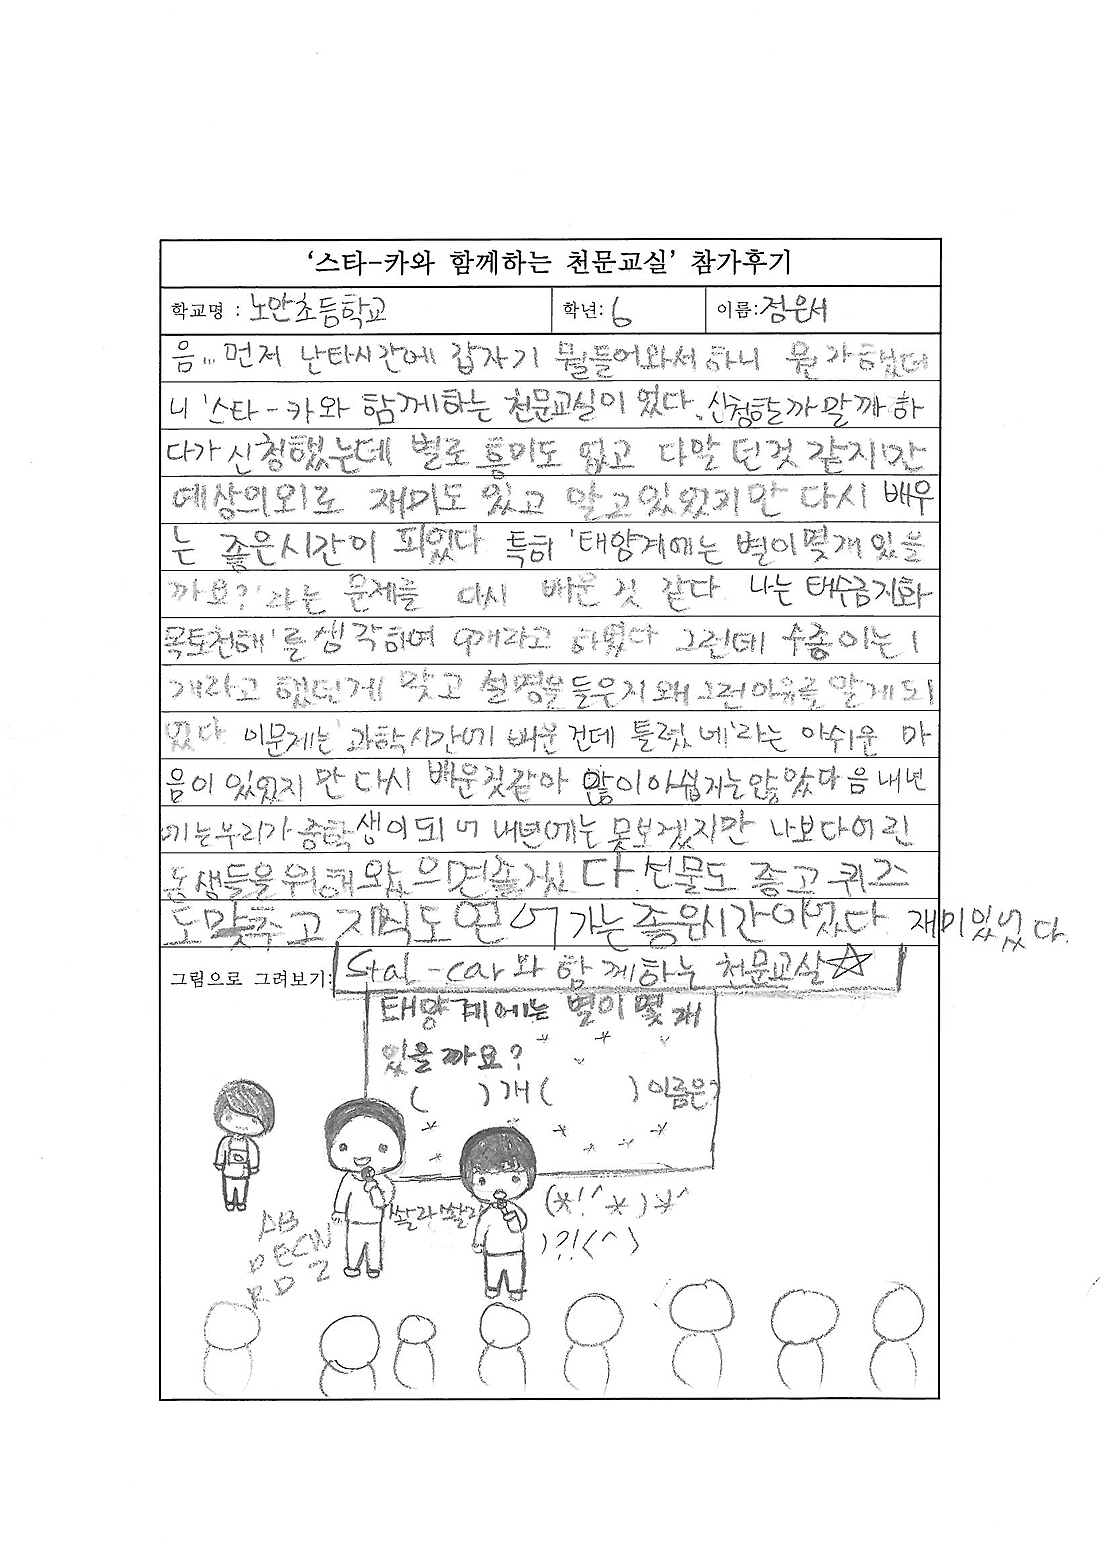 '스타-카와 함께하는 천문교실' 참가후기
학교명 : 노안초등학교 학년: 6 이름: 정은서
음... 먼저 난타시간에 갑자기 뭘들어와서 하니 뭔가했더
니 '스타-카와 함께하는 천문교실이 였다. 신청할까말까 하
다가 신청했는데 별로 흥미도 없고 다알던것 같지만
예상의외로 재미도 있고 알고있었지만 다시 배우
는 좋은시간이 되었다 특히 '태양계에는 별이몇개있을
까요?'라는 문제를 다시 배운 것 같다 나는 태수금지화
목토천해'를 생각하여 9개라고 하였다 그런데 수종이는 1
개라고 했던게 맞고 설명을 들은지 왜 그런이유를 알게되
었다 이문제는 '과학시간에 배운건데 틀렸네'라는 아쉬운 마
음이 있었지만 다시 배운것같아 많이아쉽지는않았다 음 내년
에는우리가 중학생이되어 내년에는 못보겠지만 나보다어린
동생들을위해왔으면좋겠다 선물도 좋고 퀴즈
도맞추고 지식도 얻어가는좋은시간이였다 재미있었다.
그림으로 그려보기: Stal-car와 함께하는 천문교실☆
태양계에는 별이 몇개
있을까요?
( )개 ( ) 이름은?
쏼라쏼라
(*!^*)*^
)?!<^>
AB
DECW
RDZ